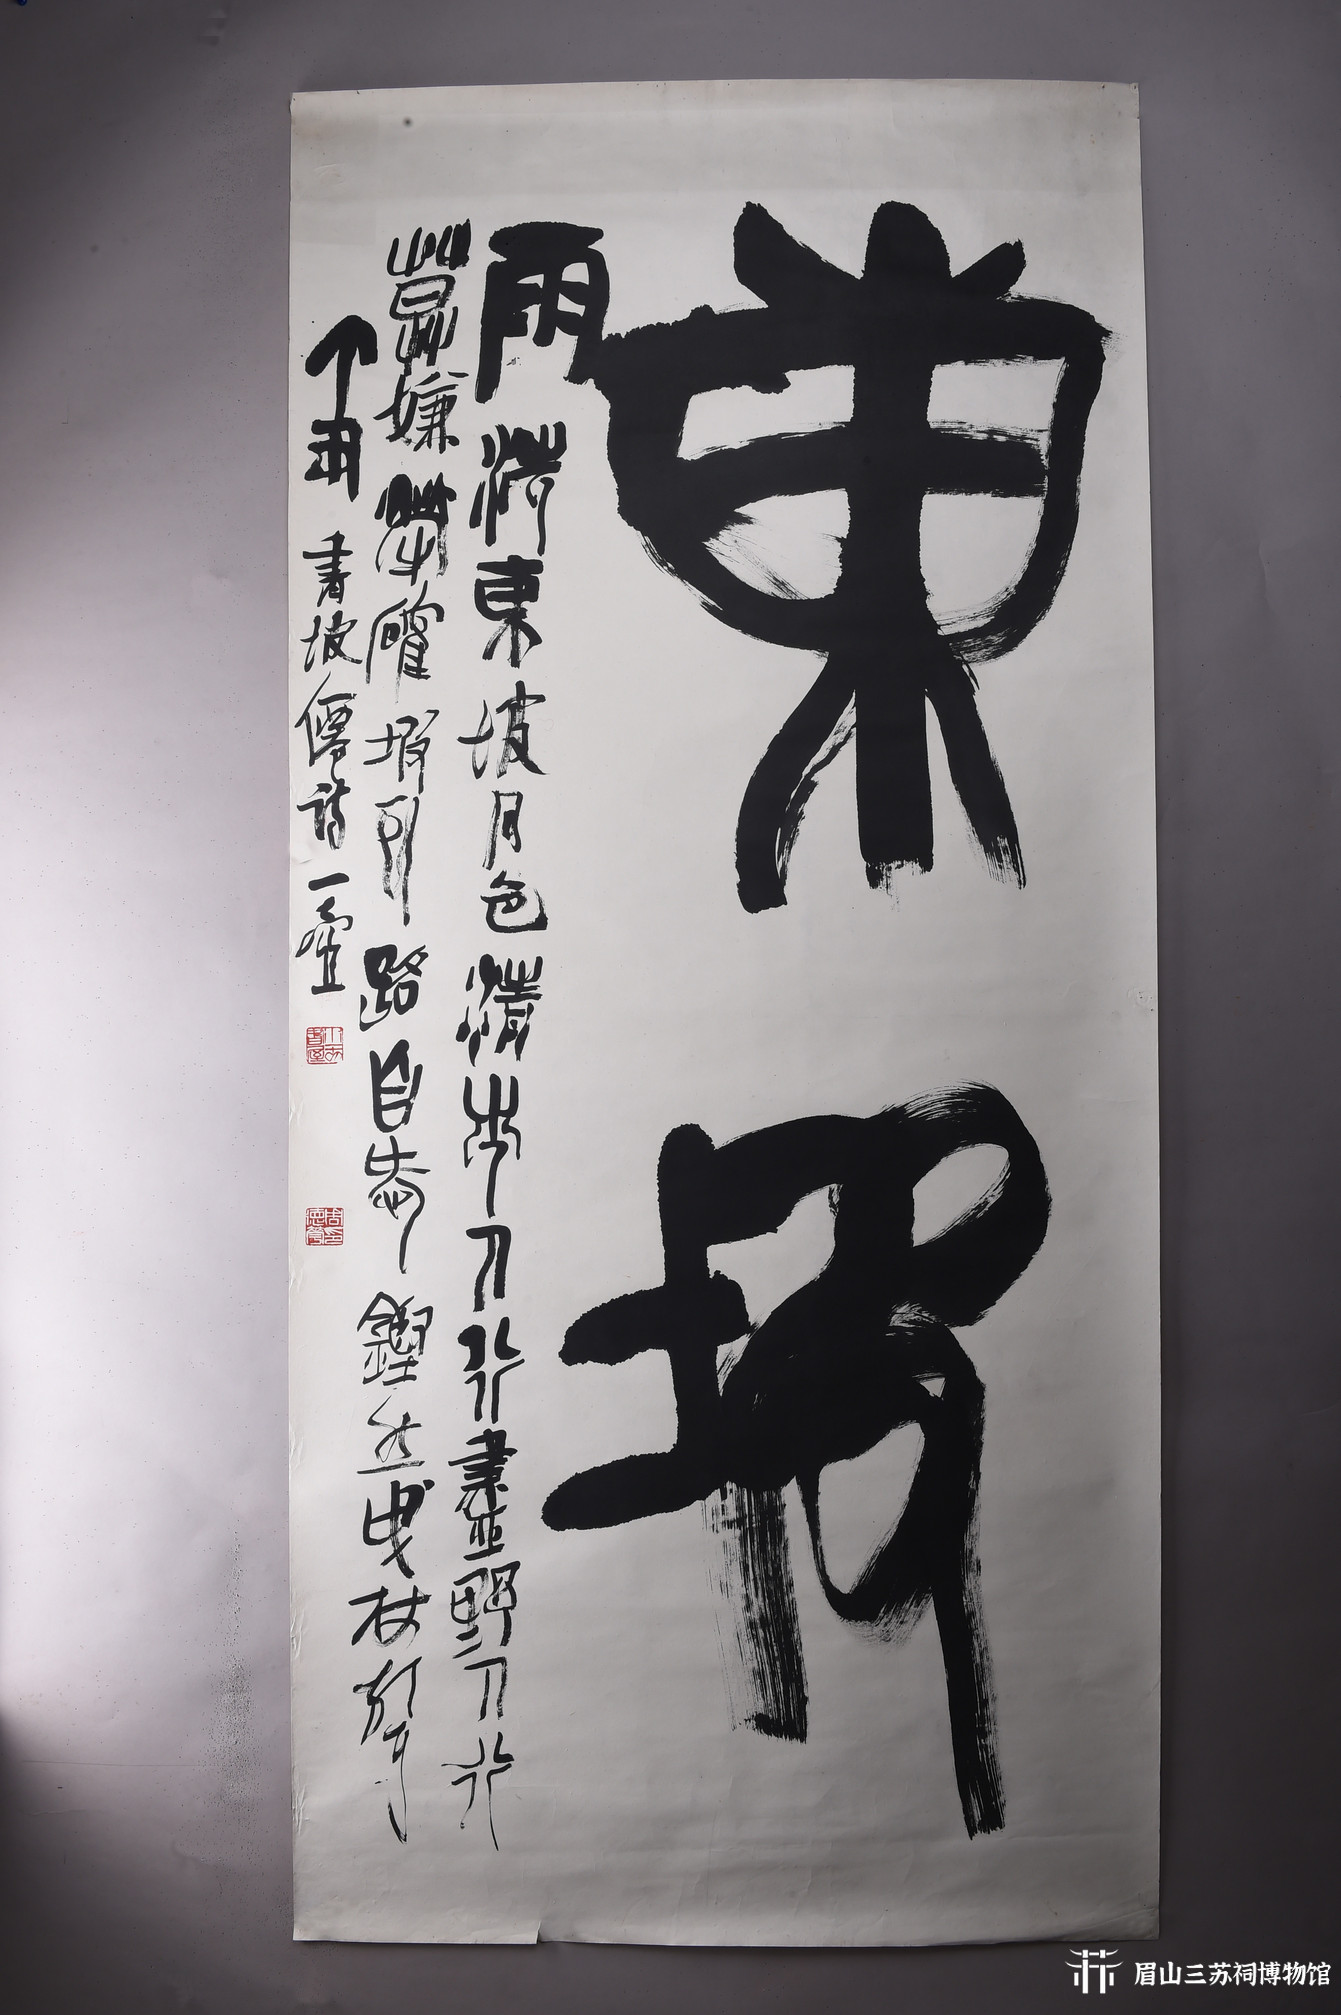 東坡
雨洗東坡月色清市人行盡野人行
莫嫌犖确坡頭路自愛鏗然曳杖聲
丁丑書坡僊詩一
眉山三苏祠博物馆